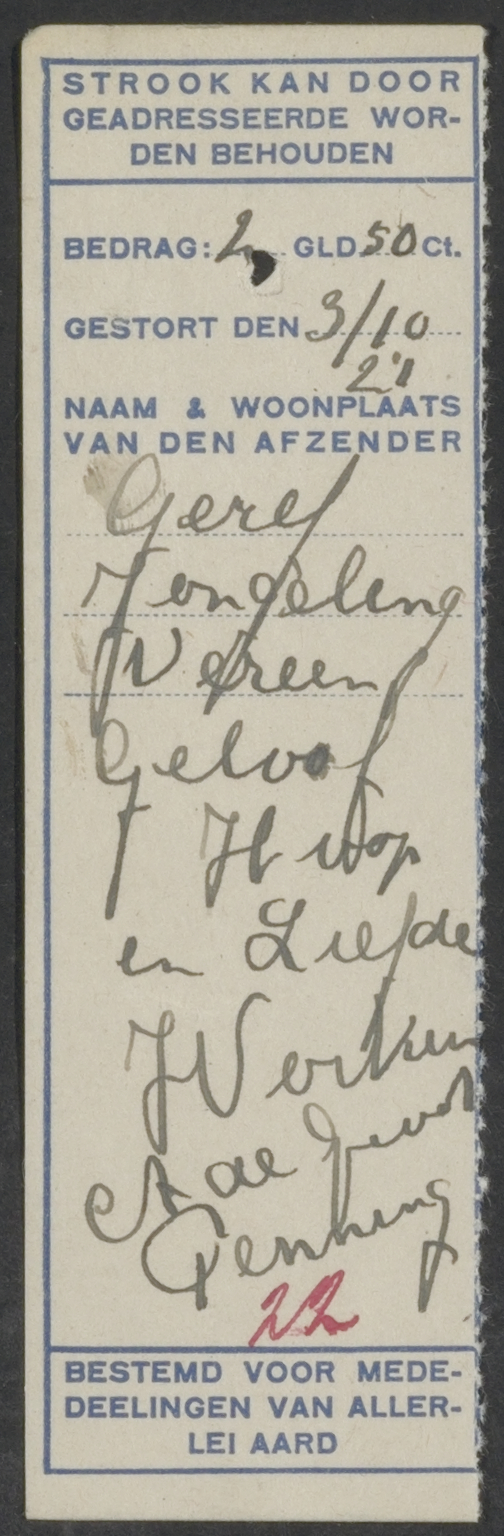 STROOK KAN DOOR
GEADRESSEERDE WOR-
DEN BEHOUDEN
BEDRAG: 2, GLD. 50 Ct.
GESTORT DEN 3/10
21
NAAM & WOONPLAATS
VAN DEN AFZENDER
Geref
Jongeling
Vereen
Geloof
Hoop
en Liefde
Workum
A de
Penning
22
BESTEMD VOOR MEDE-
DEELINGEN VAN ALLER-
LEI AARD